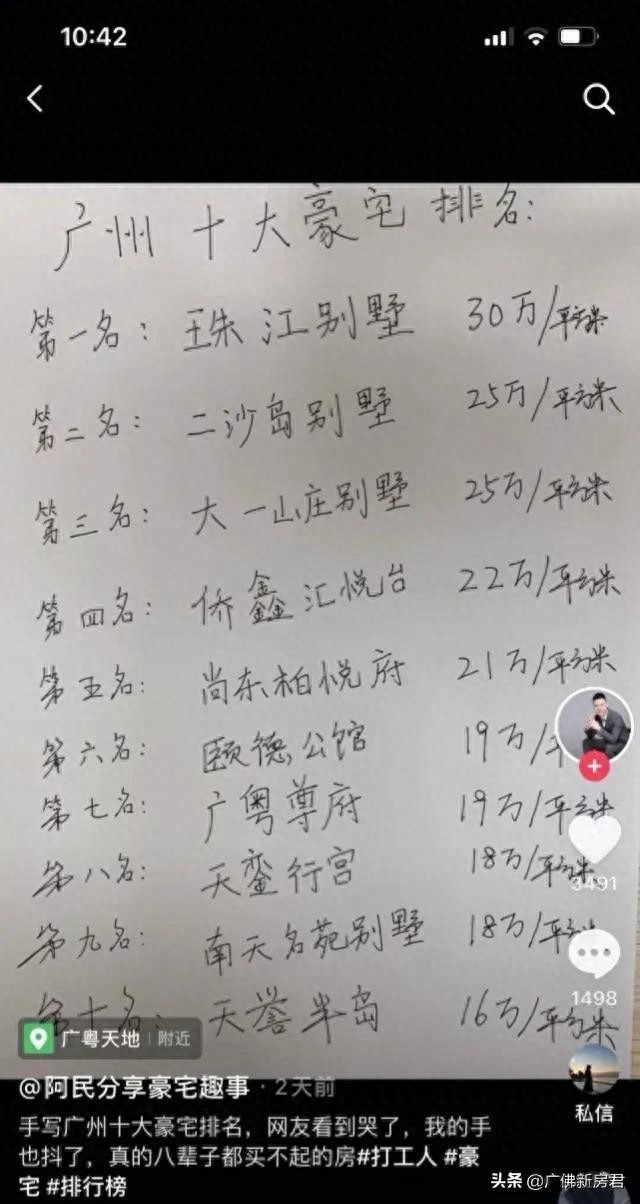 10:42
广州十大豪宅排名:
第一名: 珠江别墅 30万/平方米
第二名: 二沙岛别墅 25万/平方米
第三名: 大一山庄别墅 25万/平方米
第四名: 侨鑫汇悦台 22万/平方米
第五名: 尚东柏悦府 21万/平方米
第六名: 颐德公馆 19万/平
第七名: 广粤尊府 19万/平方米
第八名: 天銮行宫 18万/平方米
第九名: 南天名苑别墅 18万/平方
第十名: 天誉半岛 16万/平方米
3491
1498
广粤天地 附近
私信
@阿民分享豪宅趣事 · 2天前
手写广州十大豪宅排名，网友看到哭了，我的手
也抖了，真的八辈子都买不起的房#打工人 #豪
宅 #排行榜
头条 @广佛新房君